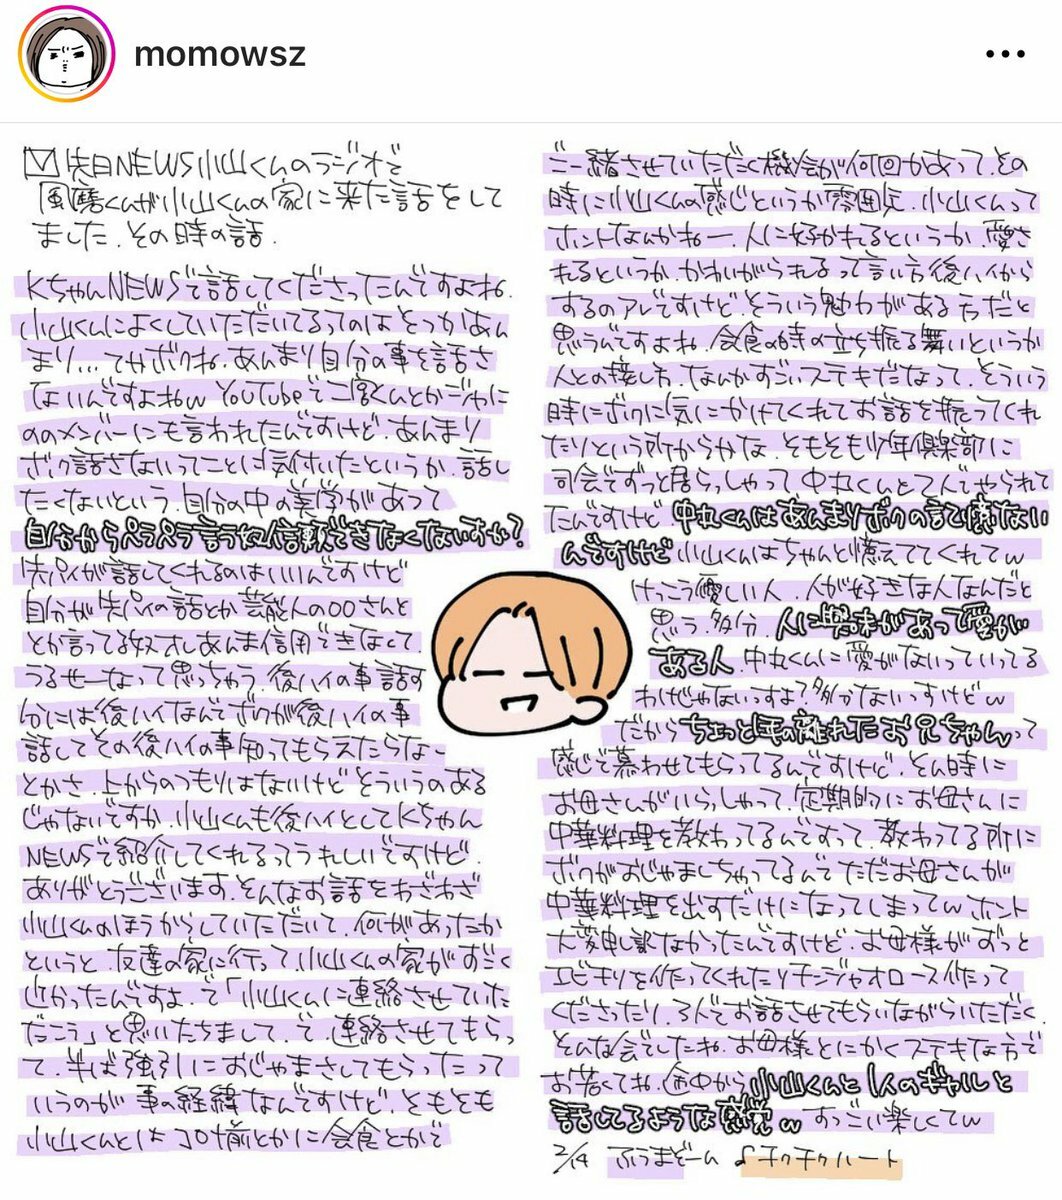 momowsz
先日NEWS小山くんのラジオで
風磨くんが小山くんの家に来た話をして
ました。その時の話。
KちゃんNEWSで話してくださったんですよね。
小山くんによくしていただいてるってのはそっかあん
まり…てかボクね、あんまり自分の事を話さ
ないんですよねw YouTubeで二宮くんとかジャに
ののメンバーにも言われたんですけど、あんまり
ボク話さないってことに気付いたというか、話し
たくないという、自分の中の美学があって
自分からペラペラ言う奴信頼できなくないすか?
先パイが話してくれるのはいいんですけど
自分が先パイの話とか芸能人の〇〇さんと
とか言ってる奴オレあんま信用できなくて、
うるせーなって思っちゃう。後ハイの事話す
分には後ハイなんでボクが後ハイの事
話してその後ハイの事知ってもらえたらなー
とかさ、上からのつもりはないけどそういうのある
じゃないですか、小山くんも後ハイとしてKちゃん
NEWSで紹介してくれるってうれしいですけど、
ありがとうございます。そんなお話をわざわざ
小山くんのほうからしていただいて、何があったか
というと、友達の家に行って、小山くんの家がすごく
近かったんですよ、で「小山くんに連絡させていた
だこう」と思いたちまして、で、連絡させてもらっ
て、半ば強引におじゃまさしてもらったって
いうのが事の経緯なんですけど、そもそも
小山くんとはコロナ前とかに会食とかで
ご一緒させていただく機会が何回かあって、その
時に小山くんの感じというか雰囲気、小山くんって
ホントなんかねー、人に好かれるというか、愛さ
れるというか、かわいがられるって言い方後ハイから
するのアレですけど、そういう魅力がある方だと
思うんですよね、会食の時の立ち振る舞いというか
人との接し方、なんかすごいステキだなって、そういう
時にボクに気にかけてくれてお話を振ってくれ
たりという所からかな、そもそも少年倶楽部に
司会でずっと居らっしゃって中丸くんと2人でやられて
たんですけど、中丸くんはあんまりボクの記憶ない
んですけど 小山くんはちゃんと憶えててくれてw
けっこう優しい人、人が好きな人なんだと
思う。多分、人に興味があって愛が
ある人、中丸くんに愛がないっていってる
わけじゃないすよ?多分ないっすけどw
だからちょっと年の離れたお兄ちゃんって
感じで慕わせてもらってるんですけど、そん時に
お母さんがいらっしゃって、定期的にお母さんに
中華料理を教わってるんですって、教わってる所に
ボクがおじゃましちゃってるんでただお母さんが
中華料理を出すだけになってしまってw ホント
大変申し訳なかったんですけど、お母様がずっと
エビチリを作ってくれたりチンジャオロース作って
くださったり、3人でお話させてもらいながらいただく、
そんな会でしたね、お母様とにかくステキな方で
お若くてね、途中から小山くんと1人のギャルと
話してるような感覚w すっごい楽しくてw
2/14 ふうまぞーん ♪チクチクハート